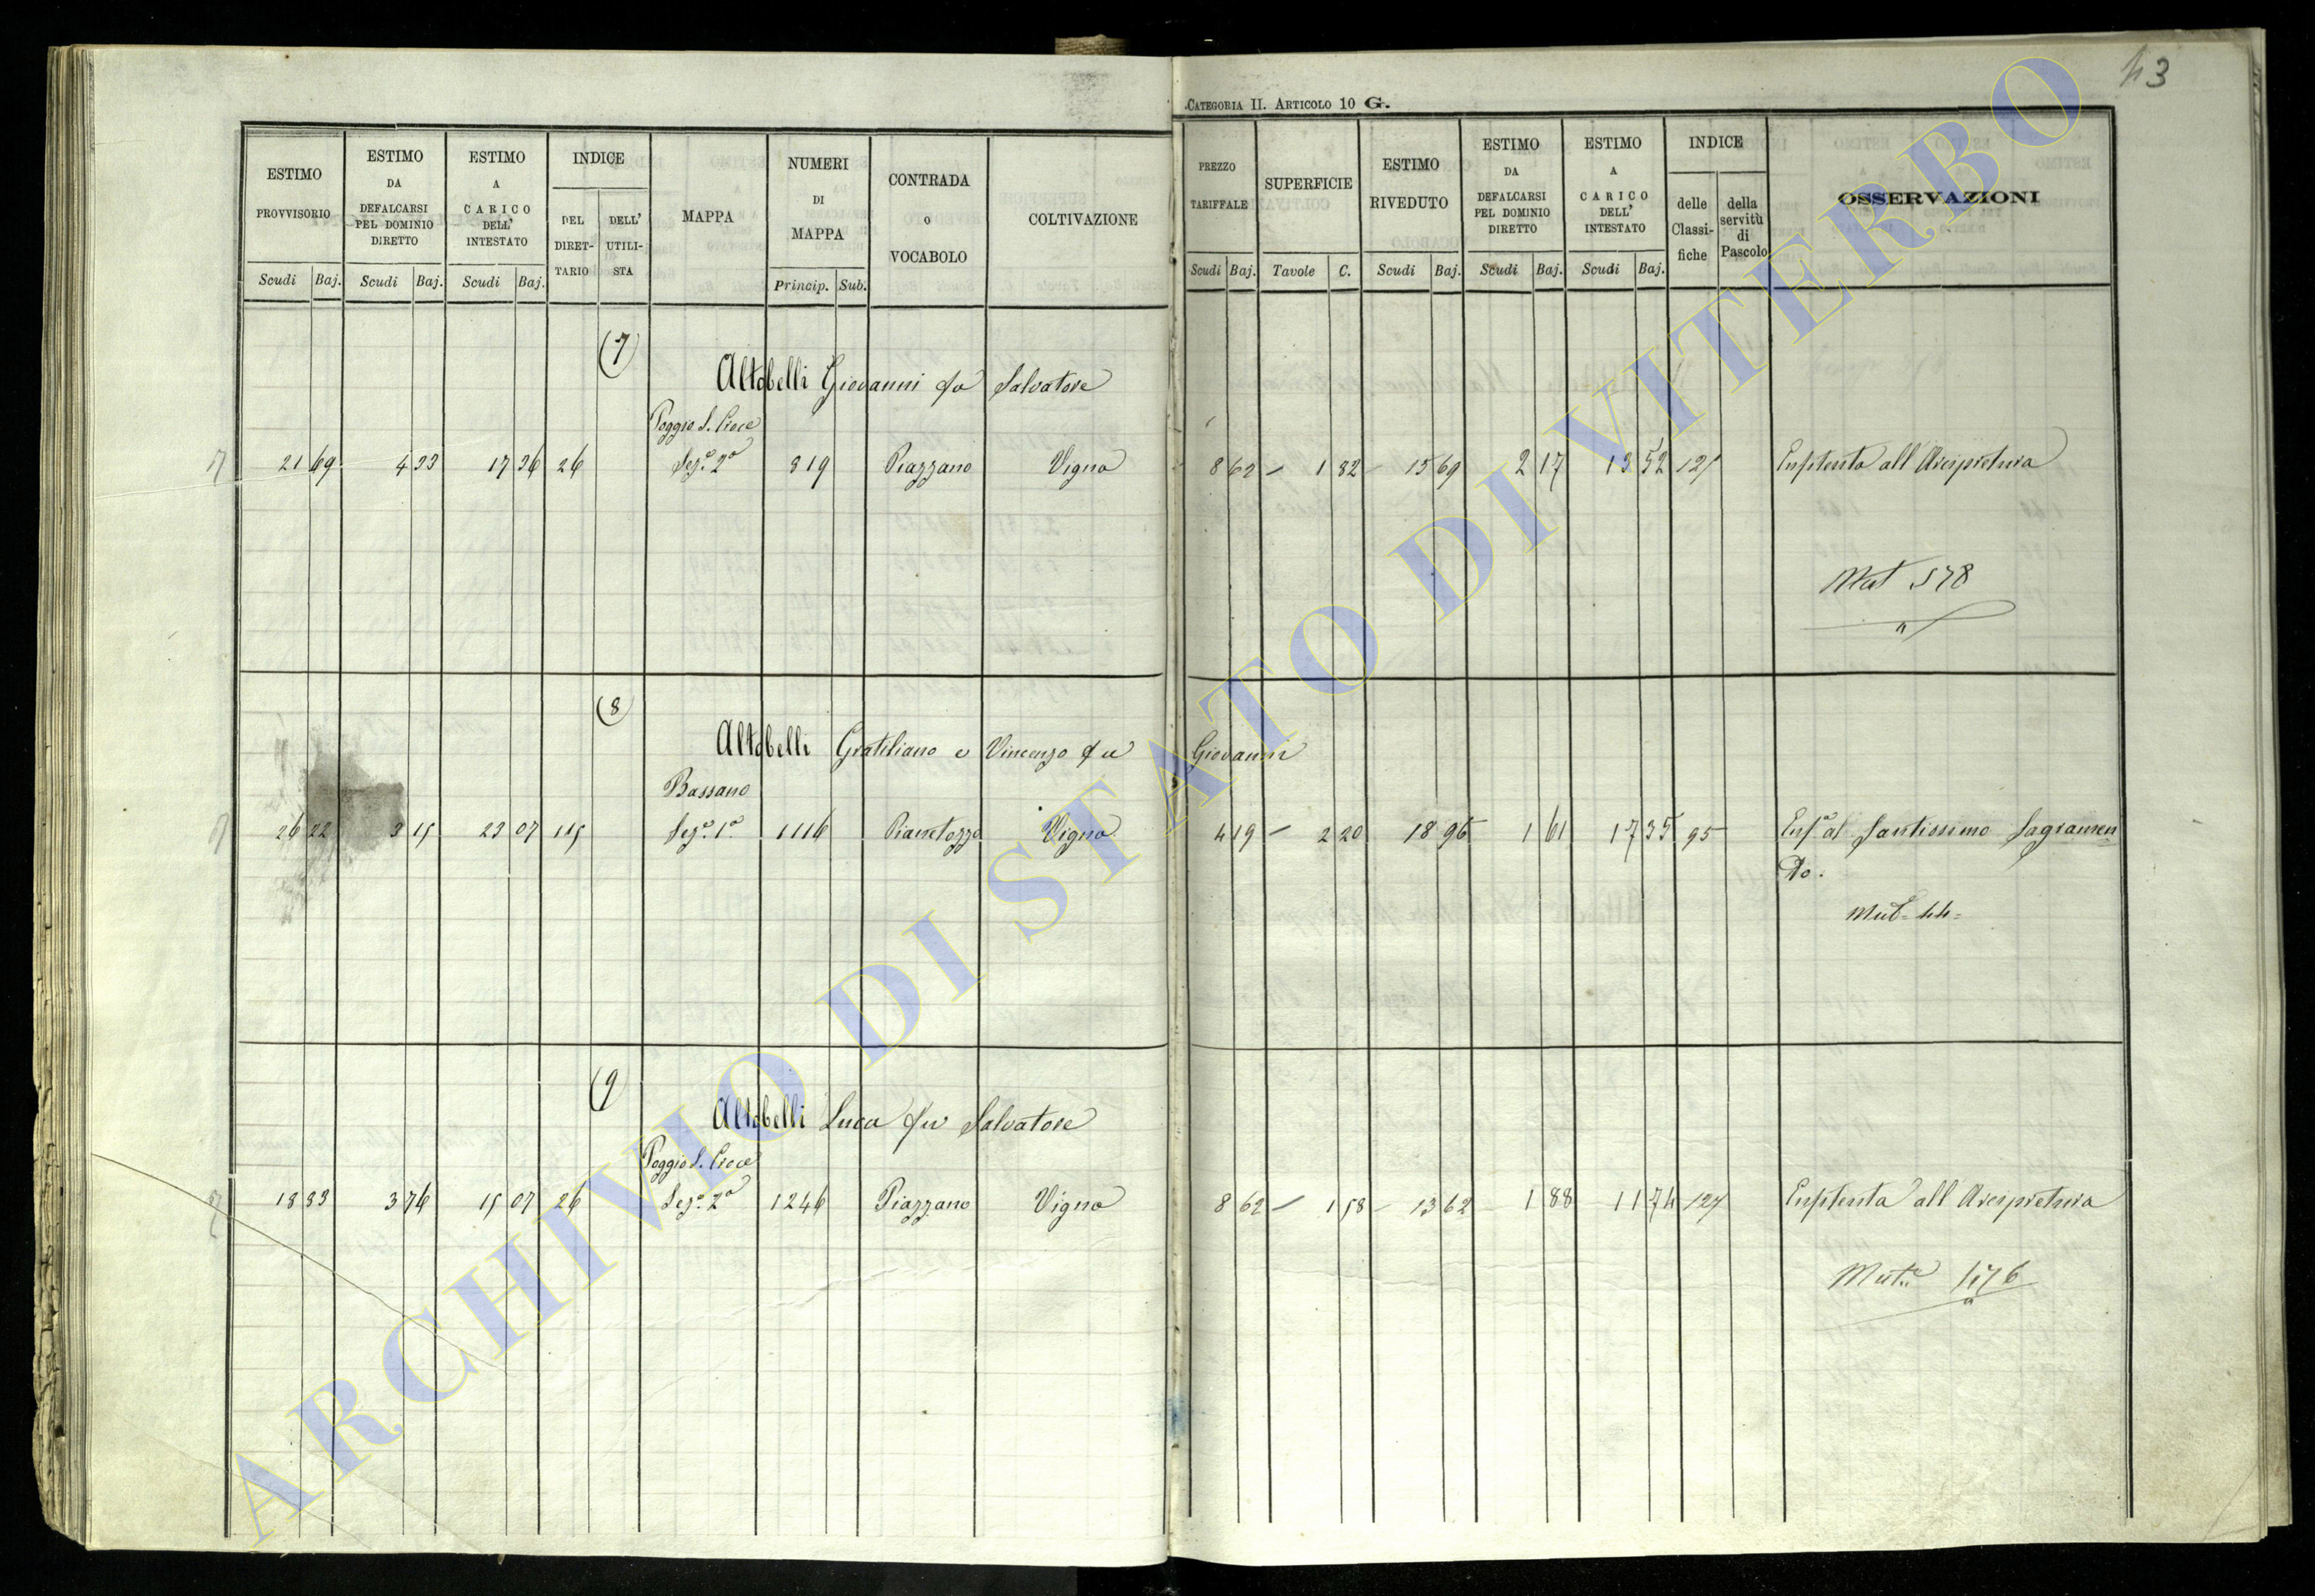 43
CATEGORIA II. ARTICOLO 10 G.
ESTIMO PROVVISORIO
ESTIMO DA DEFALCARSI PEL DOMINIO DIRETTO
ESTIMO A CARICO DELL' INTESTATO
INDICE
DEL DIRET-TARIO
DELL' UTILI-STA
MAPPA
NUMERI DI MAPPA
CONTRADA O VOCABOLO
COLTIVAZIONE
Scudi Baj. Scudi Baj. Scudi Baj. Princip. Sub.
PREZZO TARIFFALE
SUPERFICIE
ESTIMO RIVEDUTO
ESTIMO DA DEFALCARSI PEL DOMINIO DIRETTO
ESTIMO A CARICO DELL' INTESTATO
INDICE
delle Classi-fiche
della servitù di Pascolo
OSSERVAZIONI
Scudi Baj. Tavole C. Scudi Baj. Scudi Baj. Scudi Baj.
(7)
Altobelli Giovanni fu Salvatore
Poggio S. Croce
21 69 4 33 17 36 26 Sez.e 2a 319 Piazzano Vigna 8 62 1 82 15 69 2 17 13 52 Enfiteuta all Arcipretura
Mut 578
(8)
Altobelli Gratiliano e Vincenzo fu Giovanni
Bassano
26 22 3 15 23 07 115 Sez.e 1a 1116 Pianetozzo Vigna 4 19 2 20 18 96 1 61 17 35 95 Enf.a al Santissimo Sagramen
to.
Mut. 44
(9
Altobelli Luca fu Salvatore
Poggio S. Croce
18 83 3 76 15 07 26 Sez.e 2a 1246 Piazzano Vigna 8 62 1 58 13 62 1 88 11 74 127 Enfiteuta all Arcipretura
Mut.e 176
ARCHIVIO DI STATO DI VITERBO